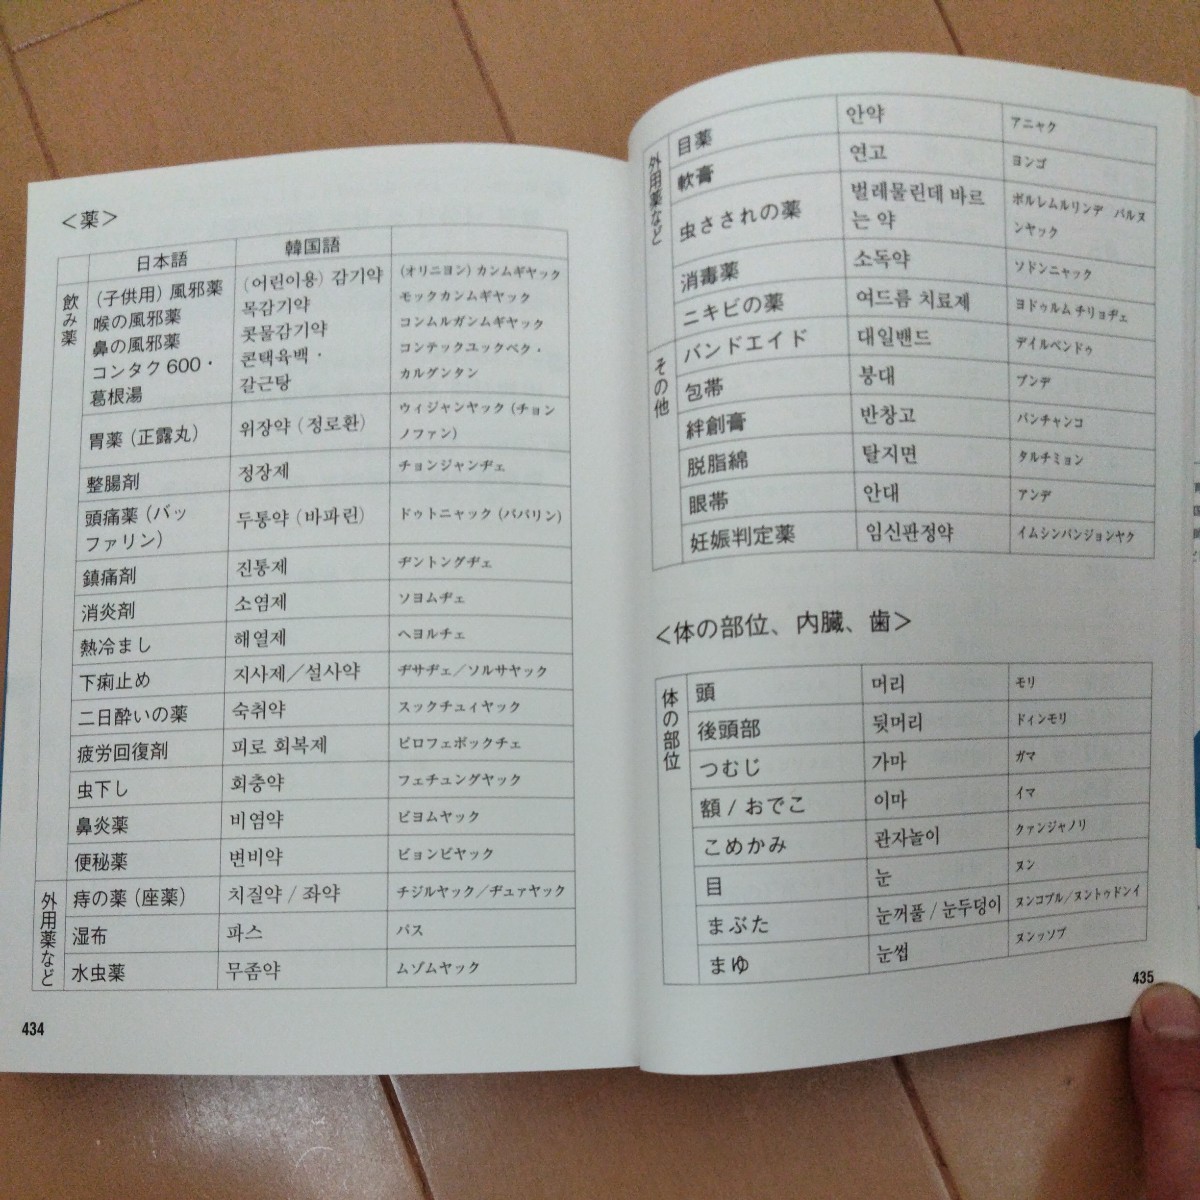 ＜薬＞
日本語 韓国語
飲み薬
(子供用) 風邪薬 (어린이용) 감기약 (オリニヨン) カンムギヤック
喉の風邪薬 목감기약 モックカンムギヤック
鼻の風邪薬 콧물감기약 コンムルガンムギヤック
コンタク600・ 콘택육백・ コンテックユックベク・
葛根湯 갈근탕 カルグンタン
胃薬 (正露丸) 위장약 (정로환) ウィジャンヤック (チョン
ノファン)
整腸剤 정장제 チョンジャンヂェ
頭痛薬 (バッ 두통약 (바파린) ドゥトニャック (パパリン)
ファリン)
鎮痛剤 진통제 ヂントングヂェ
消炎剤 소염제 ソヨムヂェ
熱冷まし 해열제 ヘヨルチェ
下痢止め 지사제／설사약 ヂサヂェ／ソルサヤック
二日酔いの薬 숙취약 スックチュィヤック
疲労回復剤 피로 회복제 ピロフェボックチェ
虫下し 회충약 フェチュングヤック
鼻炎薬 비염약 ビヨムヤック
便秘薬 변비약 ビョンビヤック
外用薬など
痔の薬 (座薬) 치질약 / 좌약 チジルヤック／ヂュァヤック
湿布 파스 パス
水虫薬 무좀약 ムゾムヤック
434
外用薬など
目薬 안약 アニャク
軟膏 연고 ヨンゴ
虫さされの薬 벌레물린데 바르 ボルレムルリンデ バルヌ
는 약 ンヤック
消毒薬 소독약 ソドンニャック
ニキビの薬 여드름 치료제 ヨドゥルム チリョヂェ
その他
バンドエイド 대일밴드 デイルベンドゥ
包帯 붕대 ブンデ
絆創膏 반창고 バンチャンコ
脱脂綿 탈지면 タルチミョン
眼帯 안대 アンデ
妊娠判定薬 임신판정약 イムシンパンジョンヤク
＜体の部位、内臓、歯＞
体の部位
頭 머리 モリ
後頭部 뒷머리 ドィンモリ
つむじ 가마 ガマ
額 / おでこ 이마 イマ
こめかみ 관자놀이 クァンジャノリ
目 눈 ヌン
まぶた 눈꺼풀 / 눈두덩이 ヌンコプル／ヌントゥドンイ
まゆ 눈썹 ヌンッソプ
435